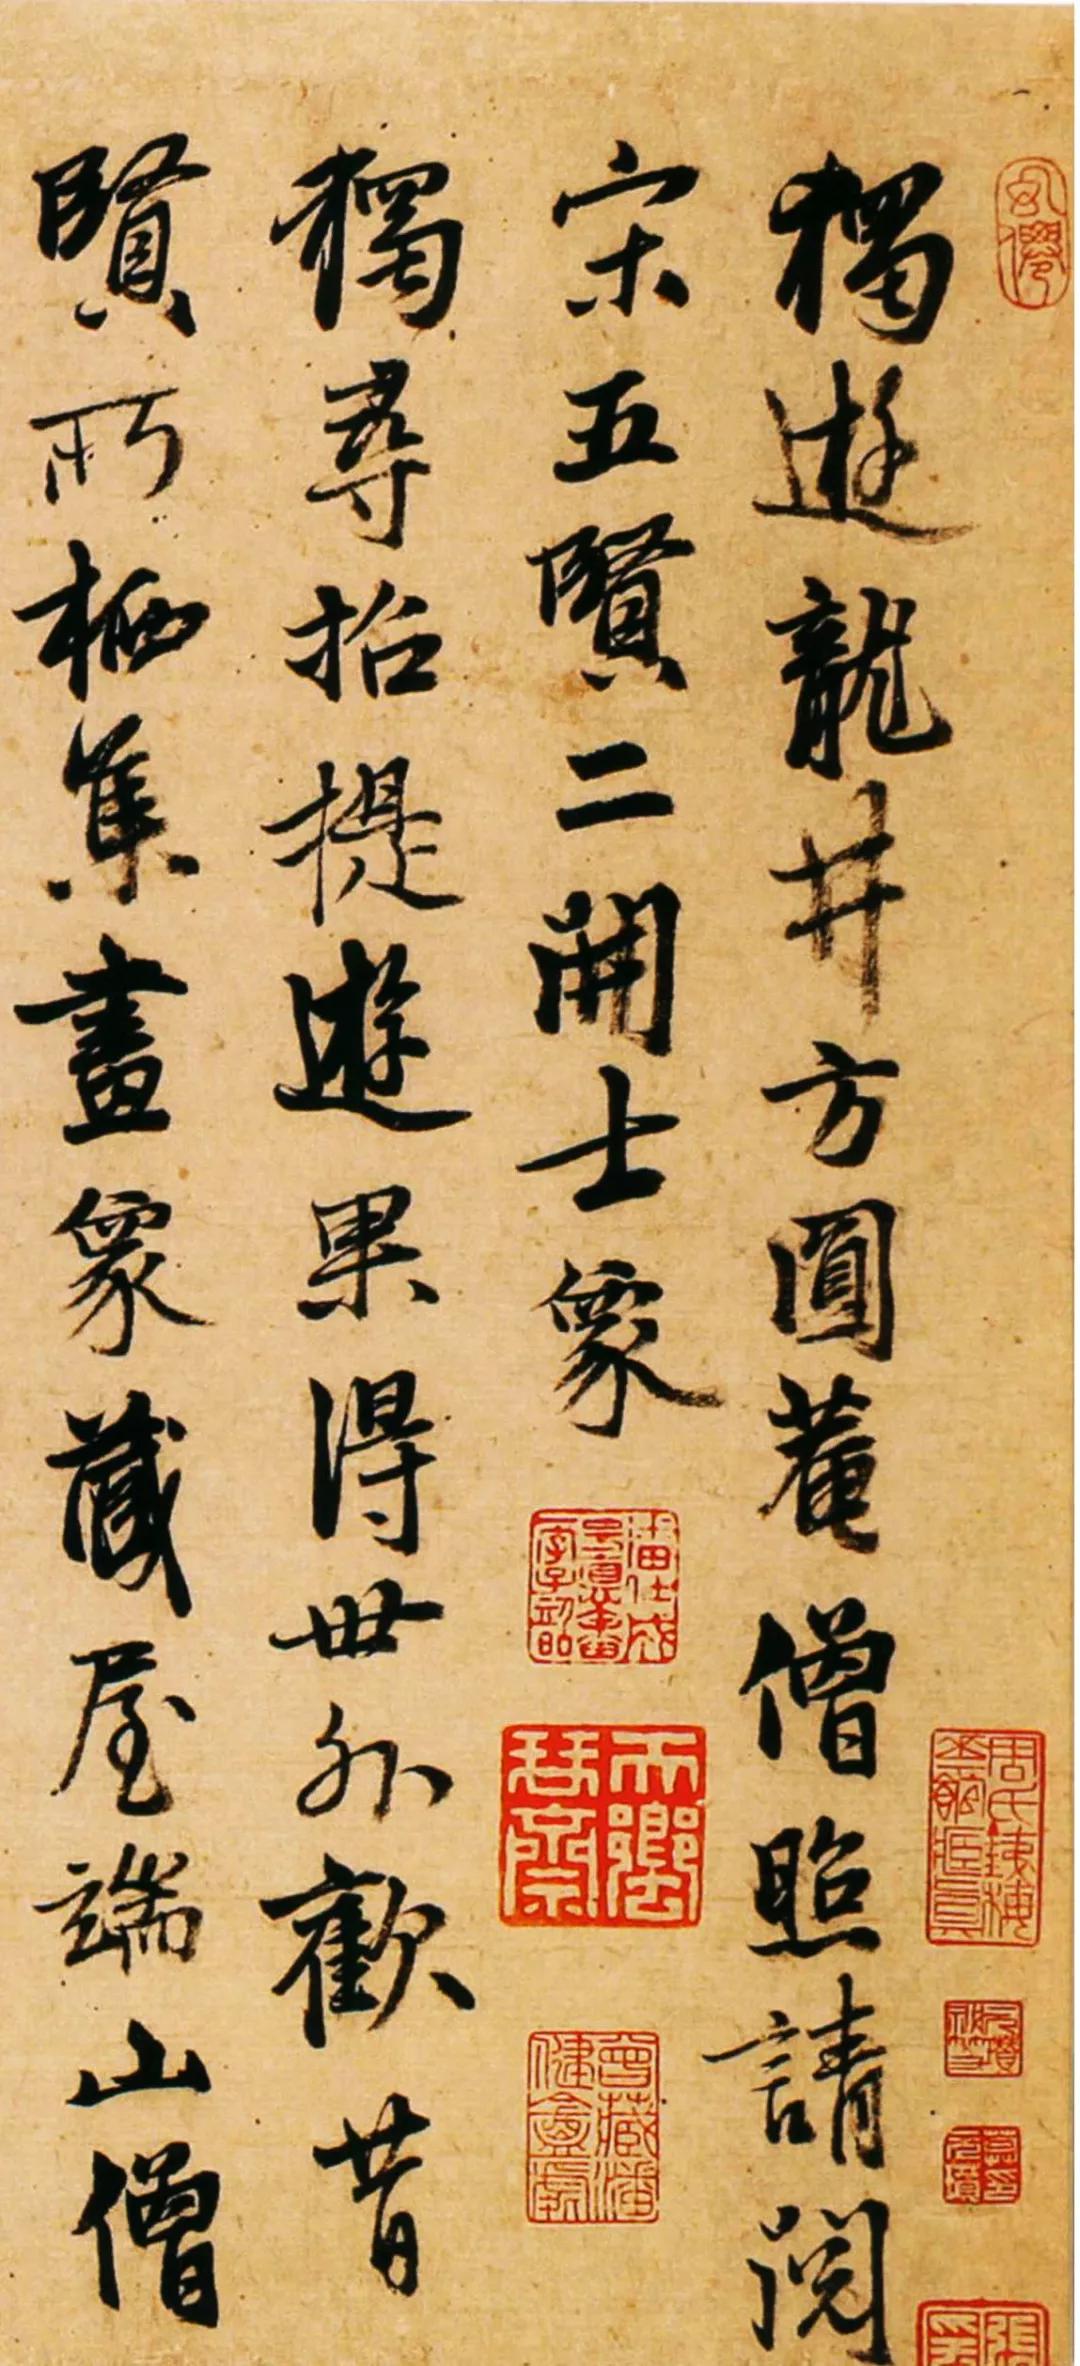 獨遊龍井方圓菴僧照請閱
宋五賢二開士象
獨尋招提遊果得世外歡昔
賢所栖集畫象藏屋端山僧
曾藏潘健盦處